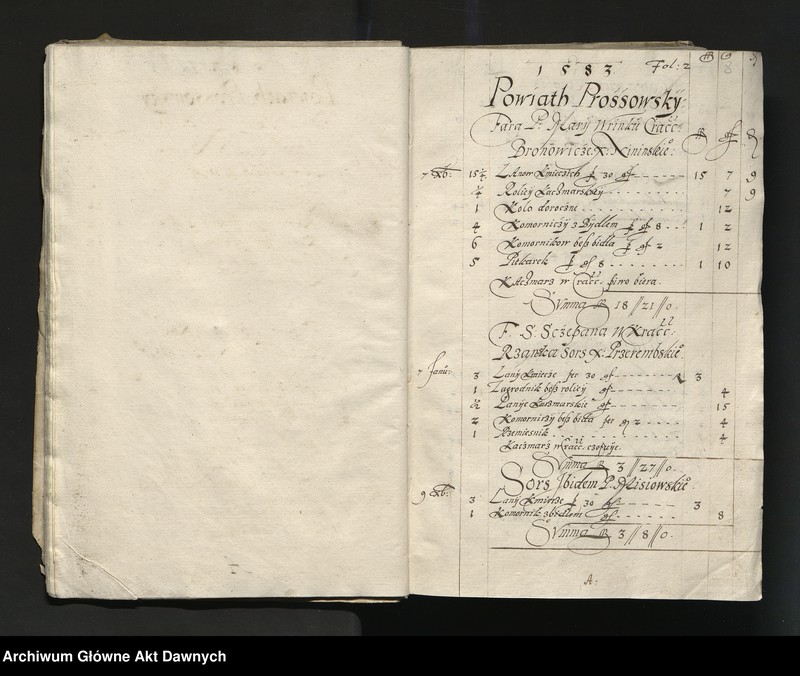 1583 Fol: 2
Powiath Prossowsky
Fara P: Mary Wrinku Cracc:
Bronowicze X. Kininskie:
7 Xb: 15 Lanow kmieczich 30 gr 15 7 9
Roliey kaczmarskiey 7 9
1 Kolo doroczne 12
4 Komorniczy z Bydlem gr 8 1 2
6 Komornikow bess bidla gr 2 12
5 Piekarek gr 8 1 10
Kaczmarz w Cracc: piwo biera.
Summa 18 // 21 // 0.
F. S. Sczepana W Kracc:
Rzanska Sors X. Przerembskie
7 Janu: 3 Lany kmiecze per 30 gr 3
1 Zagrodnik bess roliey gr 4
½ Lanye karzmarskie gr 15
2 Komorniczy bess bidla per gr 2 4
1 Rzemiesnik 4
Kaczmarz w Cracc. czopuye.
Summa 3 // 27 // 0.
Sors Ibidem P. Misiowskie
9 Xb: 3 Lany Kmiecze 30 gr 3
1 Komornik z bidlem gr 8
Summa 3 // 8 // 0.
A:
Archiwum Główne Akt Dawnych